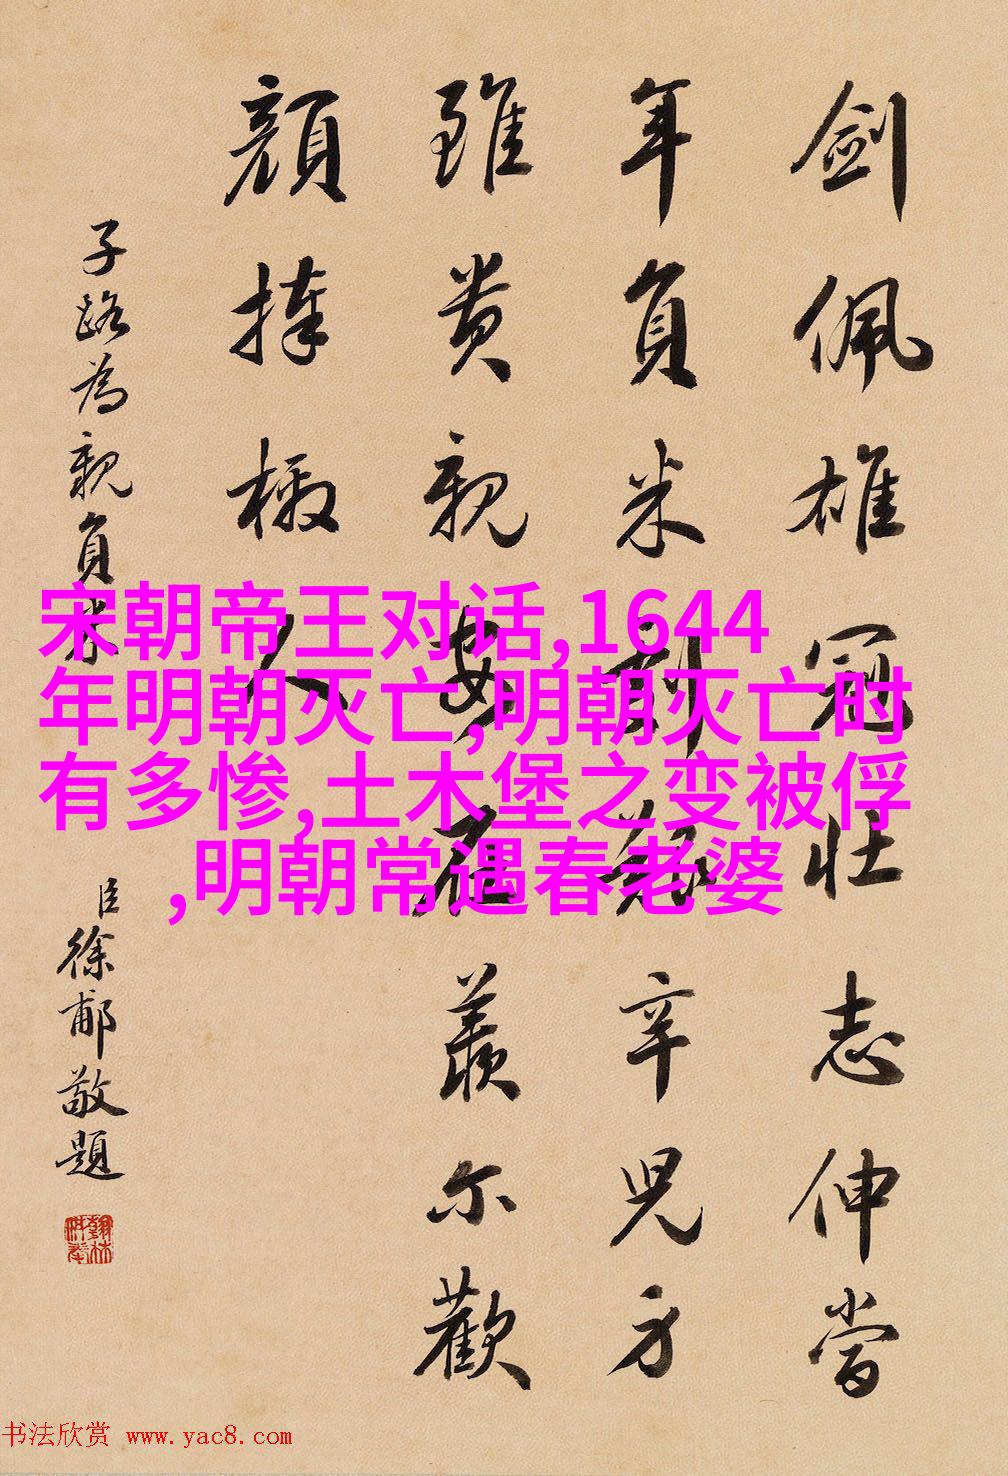 劍佩雄冠壯志伸當
年負米劇艱辛兒身
雖貴親安在羨尔歡
顏捧檄人
子路為親負米
臣徐郙敬題
宋朝帝王对话,1644
年明朝灭亡,明朝灭亡时
有多惨,土木堡之变被俘
,明朝常遇春老婆
书法欣赏 www.yac8.com